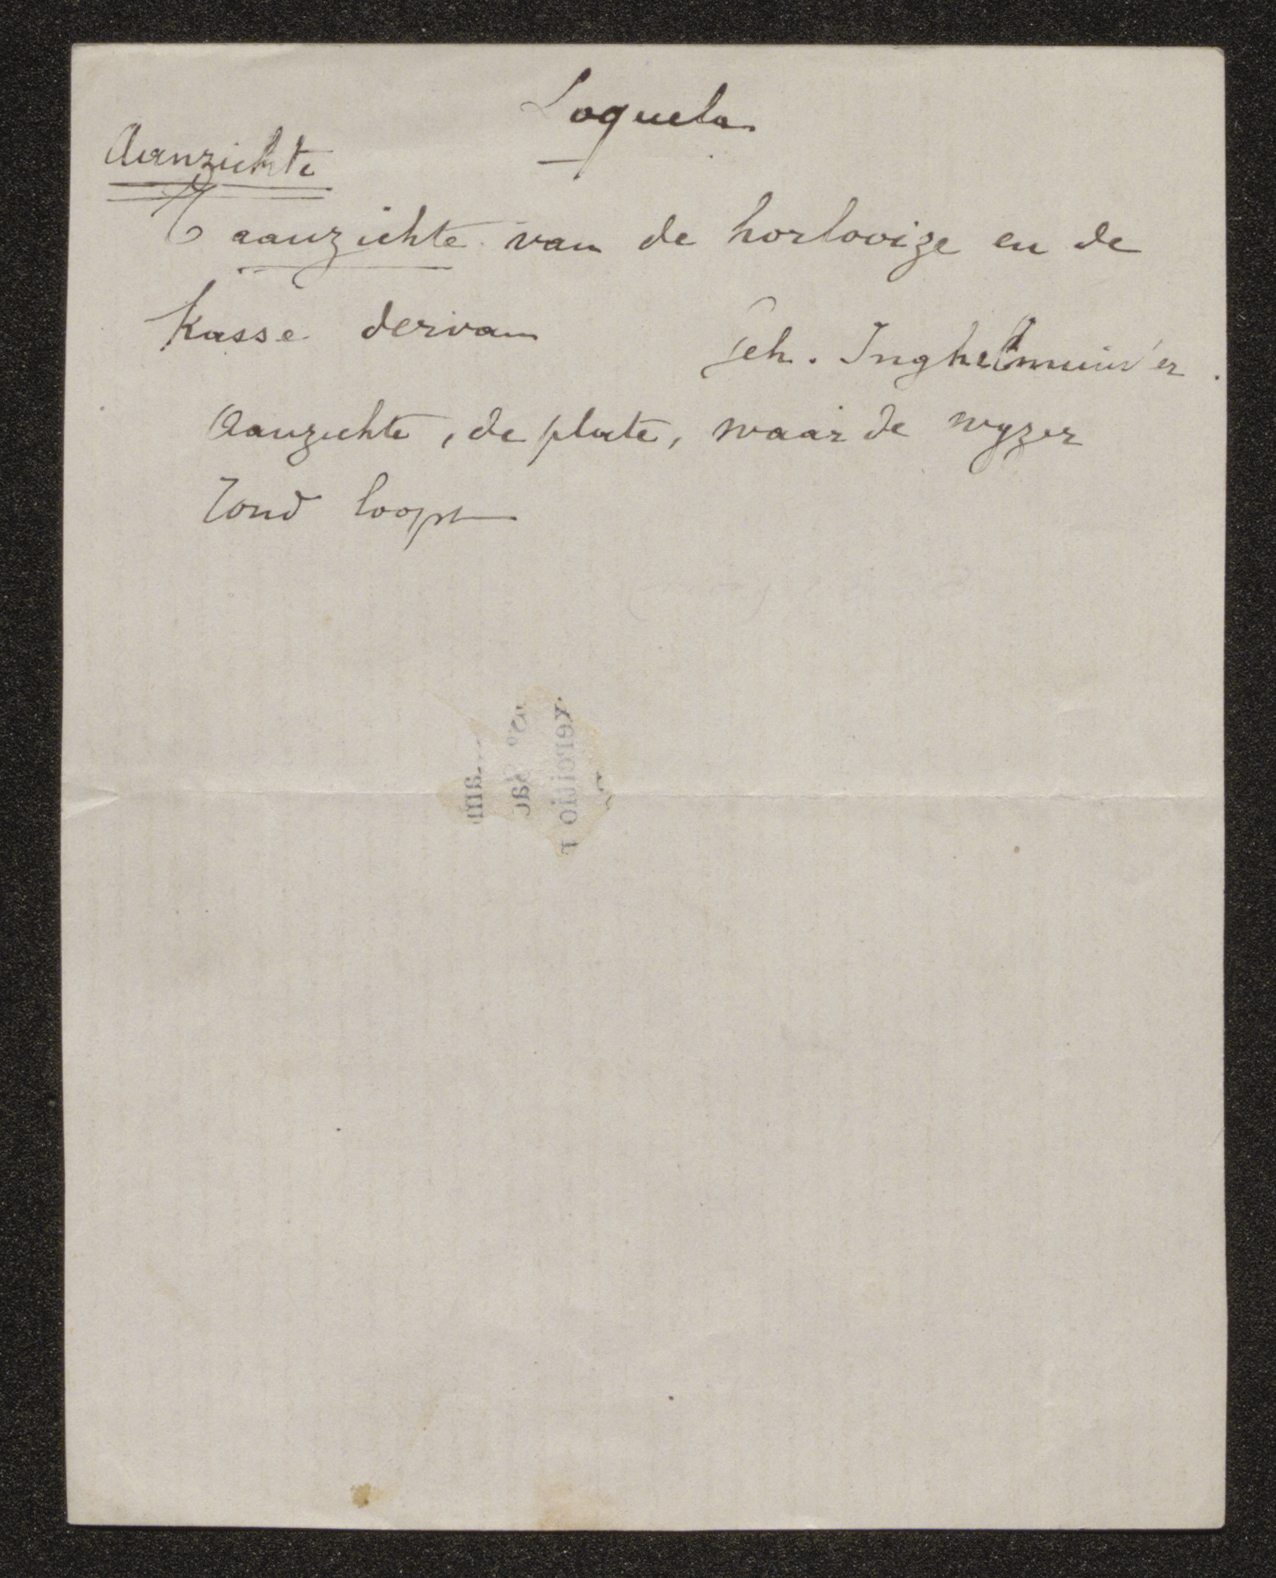 Loquela
Aanzichte
T aanzichte van de horlovize en de
kasse dervan
Geh. Inghelmunster.
Aanzichte, de plate, waar de wyzer
rond loopt
xercitio